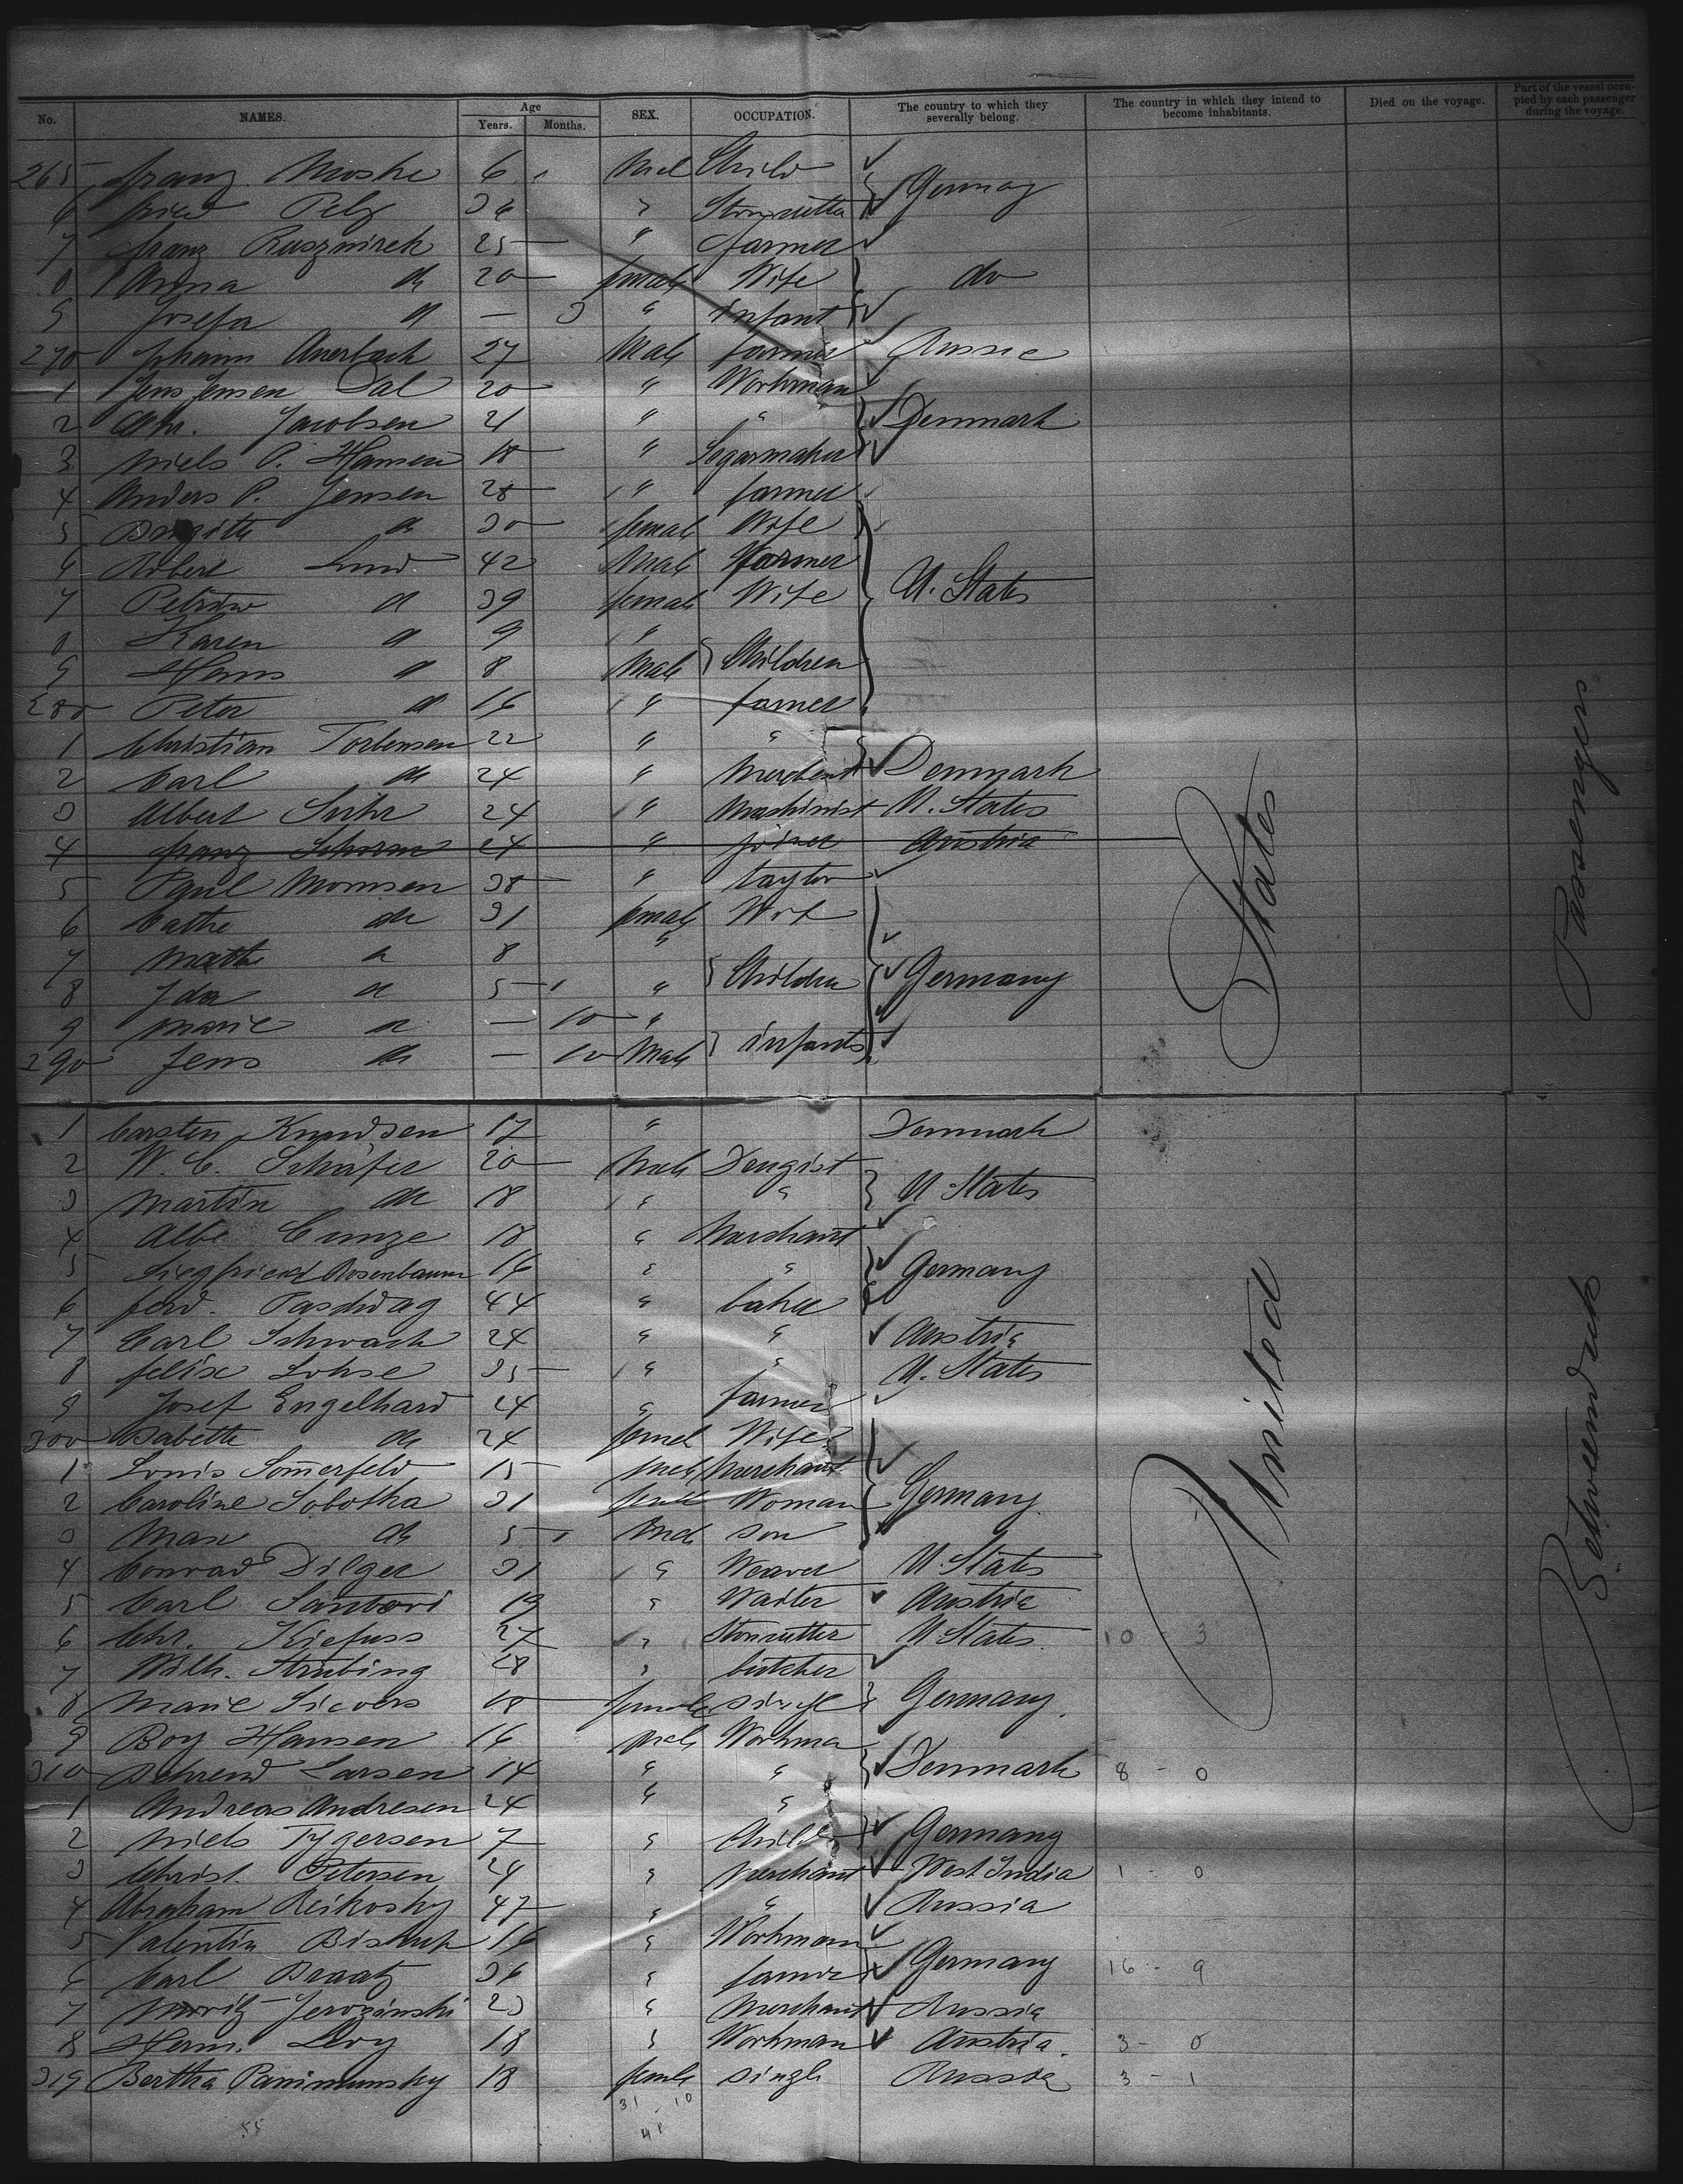 No. NAMES. Age Years. Months. SEX. OCCUPATION. The country to which they severally belong. The country in which they intend to become inhabitants. Died on the voyage. Part of the vessel occupied by each passenger during the voyage.
265 franz Moske 6 Mal Child
6 Pelz 36 " Germany
7 franz Rusznireck 25 " farmer
8 Anna do 20 female Wife do
9 Josefa do — 3 " infant
270 Johann Auerbach 27 Male farmer Russia
1 Jens Jensen Dal 20 " Workman
2 Chr. Jacobsen 21 " " Denmark
3 Niels P. Hansen 18 " Segarmaker
4 Anders P. Jensen 28 " farmer
5 Birgitte do 30 female Wife
6 Robert Lund 42 Male Farmer U. States
7 do 39 female Wife
8 Karen do 9 "
9 Hans do 8 Male Children
280 Peter do 16 " farmer
1 Christian Torbensen 22 " "
2 Carl do 24 " Merchant Denmark
3 Albert Suhr 24 " Mashinist U. States
4 franz Schorm 24 " joiner Austria
5 Paul Momsen 38 " taylor
6 Cathe do 31 female Wife
7 Mathe do 8 "
8 Ida do 5 " Children Germany
9 Marie do — 10 "
290 Jens do — 10 Male infants
1 Carsten Knudsen 17 " Denmark
2 W. C. Schäfer 20 Male Drugist
3 Martin do 18 " " U States
4 Albe Cunze 18 " Marchant
5 Siegfried Rosenbaum 16 " " Germany
6 ferd. Pasdwag 44 " baker
7 Carl Schwach 24 " " Austria
8 felix Lohse 35 " " U. States
9 Josef Engelhard 24 " farmer
300 Babette do 24 female Wife
1 Louis Somerfeld 15 Male Merchant
2 Caroline Sobotka 31 female Woman Germany
3 Max do 5 Male son
4 Conrad Dilger 31 " Weaver U. States
5 Carl Santori 19 " Waiter Austria
6 Chr. Kiefuss 27 " Stoncutter U. States 10 - 3
7 Wilh. Strübing 28 " butcher
8 Marie Sievers 18 female single Germany
9 Boy Hansen 16 Male Workma
310 Behrend Larsen 14 " " Denmark 8 - 0
1 Andreas Andresen 24 " "
2 Niels Tygersen 7 " Child Germany
3 Christ. Petersen 24 " merchant West India 1 - 0
4 Abraham Reikosky 47 " " Russia
5 Valentin Biskup 16 " Workman
6 Carl Braatz 36 " farmer Germany 16 - 9
7 Moritz Jerozinski 23 " Merchant Russia
8 Herm. Levy 18 " Workman Austria 3 - 0
319 Bertha Panimunsky 18 female single Russia 3 - 1
31 - 10
41
55
United States
Betweendeck Passengers